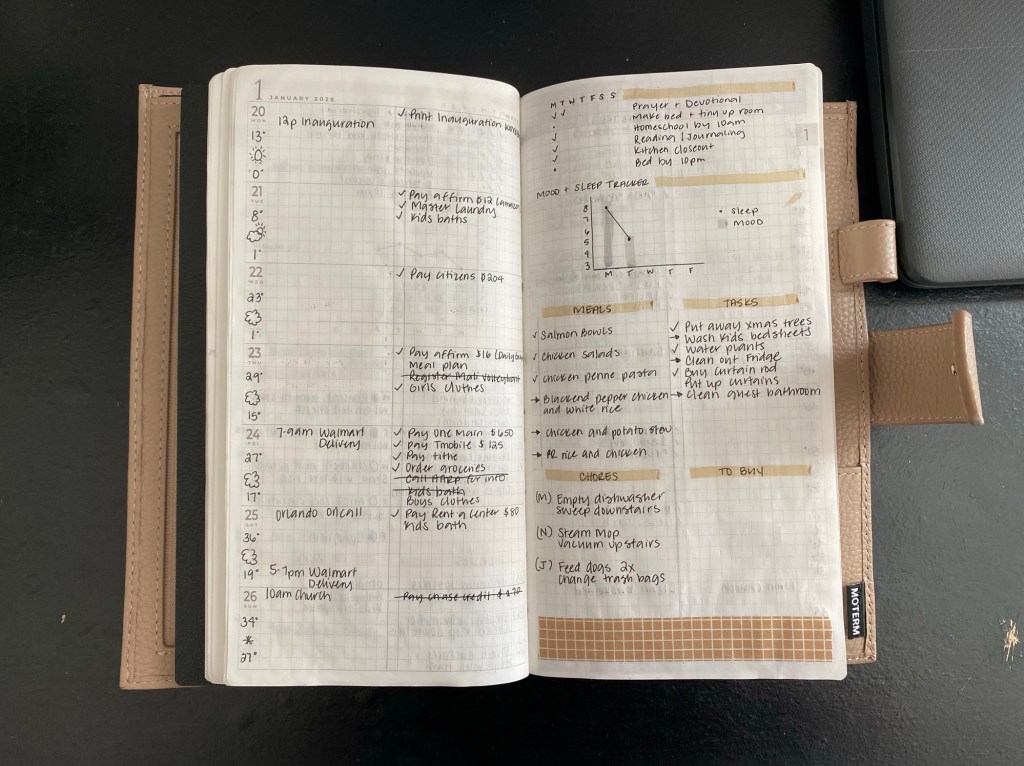 1 JANUARY 2025
20
MON
12p Inauguration
✓ Print Inauguration
13°
0°
21
TUE
✓ Pay affirm $12 (amazon
✓ Master Laundry
✓ Kids baths
8°
1°
22
WED
✓ Pay citizens $204
23°
1°
23
THU
✓ Pay affirm $16 (Daily
Meal plan
Register Mati volleyball
✓ Girls clothes
29°
15°
24
FRI
7-9am Walmart
Delivery
✓ Pay One Main $650
✓ Pay Tmobile $125
✓ Pay tithe
✓ Order groceries
Call AARP for info
Kids bath
Boys clothes
27°
17°
25
SAT
Orlando oncall
✓ Pay Rent a Center $80
Kids bath
36°
19°
5-7pm Walmart
Delivery
26
SUN
10am Church
Pay chase credit $70
34°
27°
M T W T F S S
Prayer + Devotional
Make bed + tiny up room
Homeschool by 10am
Reading | Journaling
Kitchen closeout
Bed by 10pm
1
MOOD + SLEEP TRACKER
8
7
6
5
4
3
M T W T F
• Sleep
MOOD
MEALS
✓ Salmon Bowls
✓ Chicken salads
✓ Chicken penne pasta
→ Blackend pepper chicken
and white rice
→ chicken and potato stew
→ PR rice and chicken
TASKS
✓ Put away xmas trees
→ Wash Kids bedsheets
✓ Water plants
→ Clean out Fridge
✓ Buy curtain rod
Put up curtains
→ Clean guest bathroom
CHORES
(M) Empty dishwasher
sweep downstairs
(N) Steam Mop
vacuum upstairs
(J) Feed dogs 2x
Change trash bags
TO BUY
MOTERM